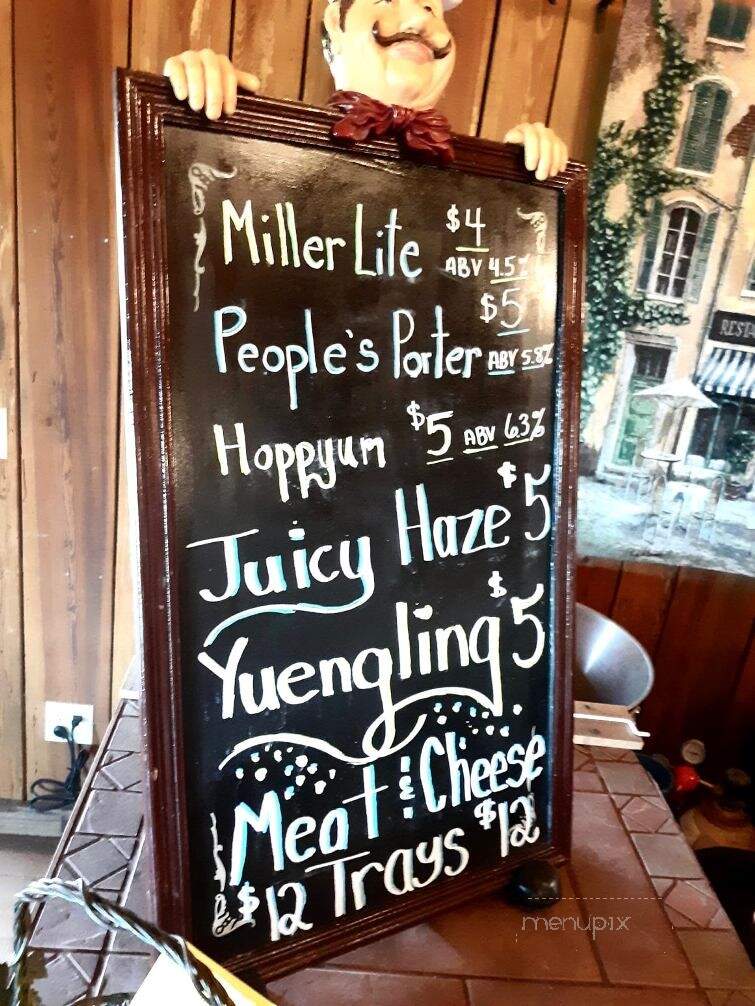 Miller Lite $4
ABV 4.5%
People's Porter $5
ABV 5.8%
Hoppyum $5 ABV 6.3%
Juicy Haze $5
Yuengling $5
Meat and Cheese
$12 Trays $12
menupix